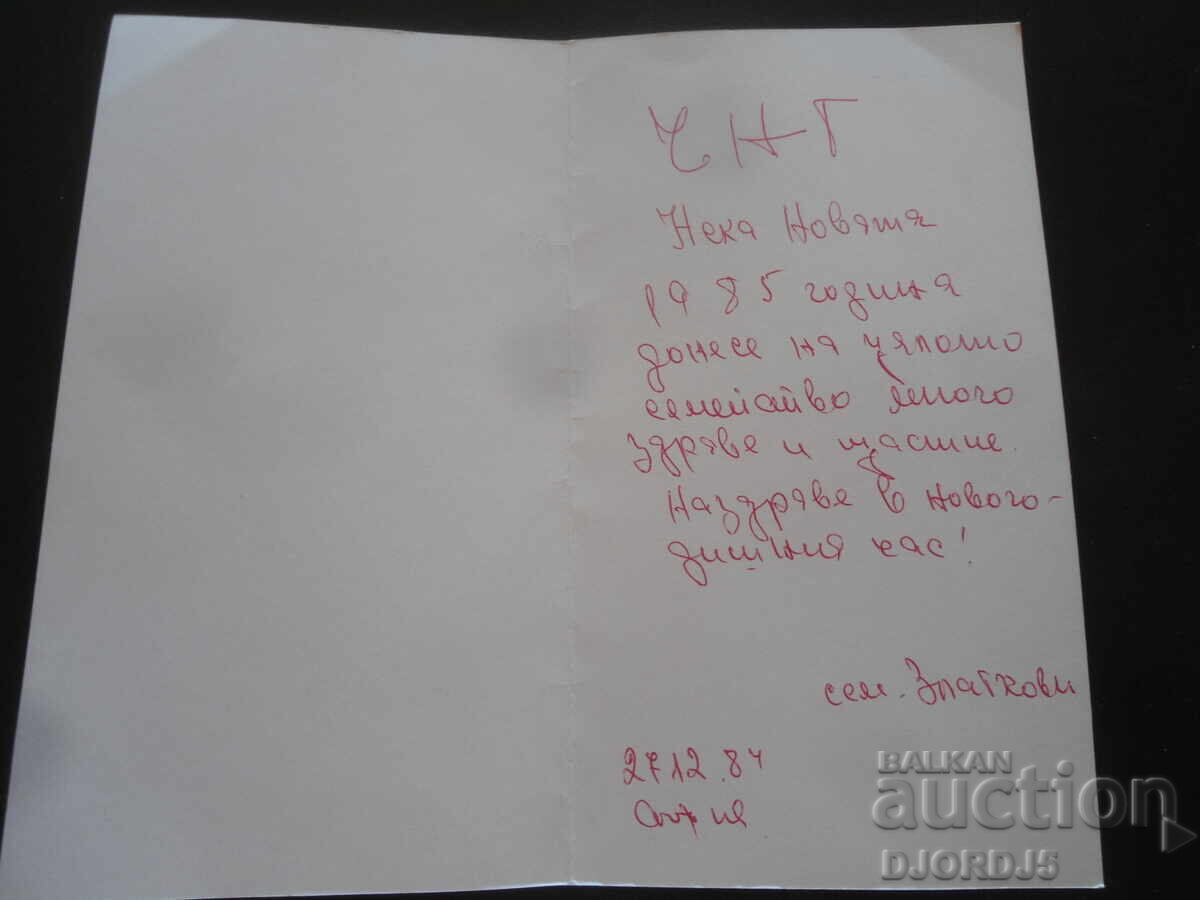 ЧНГ
Нека Новата
1985 година
донесе на цялото
семейство много
здраве и щастие.
Наздраве в нового-
дишния час!
сем. Златкови
27.12.84
София
BALKAN
auction
DJORDJ5